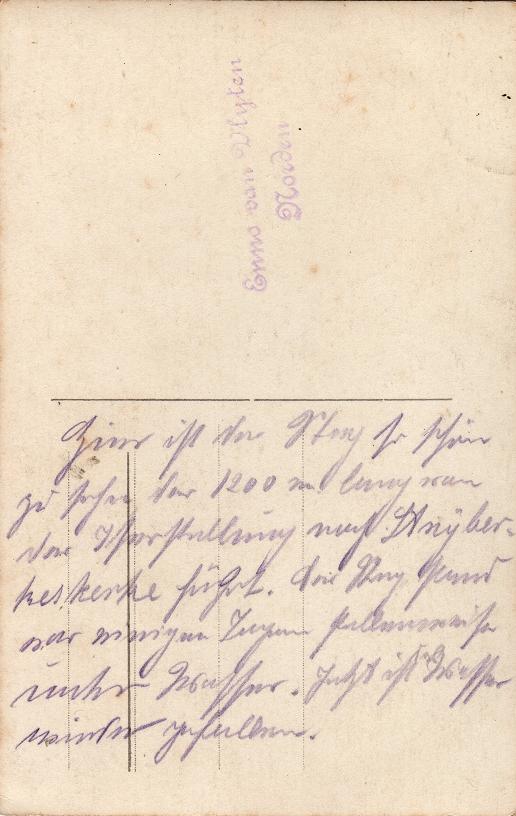 Enno von Ulysten
Norden
Hier ist der Steg so schön
zu sehen der 1200 m lang von
der Isarstellung nach Stuyver-
keskerke führt. Der Steg stand
vor einigen Tagen stellenweise
unter Wasser. Jetzt ist das Wasser
wieder gefallen.